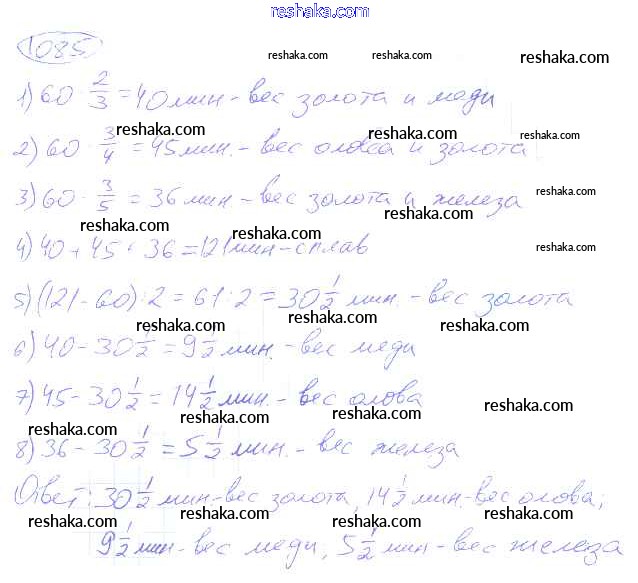 reshaka.com
1085
reshaka.com reshaka.com reshaka.com
1) 60 · 2/3 = 40 мин - вес золота и меди
reshaka.com reshaka.com reshaka.com
2) 60 · 3/4 = 45 мин. - вес олова и золота
3) 60 · 3/5 = 36 мин - вес золота и железа
reshaka.com
reshaka.com reshaka.com
4) 40 + 45 + 36 = 121 мин - сплав
reshaka.com
5) (121 - 60) : 2 = 61 : 2 = 30 1/2 мин. - вес золота
reshaka.com reshaka.com reshaka.com
6) 40 - 30 1/2 = 9 1/2 мин. - вес меди
7) 45 - 30 1/2 = 14 1/2 мин. - вес олова
reshaka.com
reshaka.com reshaka.com
8) 36 - 30 1/2 = 5 1/2 мин. - вес железа
reshaka.com reshaka.com reshaka.com
Ответ: 30 1/2 мин - вес золота, 14 1/2 мин. - вес олова;
reshaka.com reshaka.com reshaka.com
9 1/2 мин - вес меди, 5 1/2 мин - вес железа